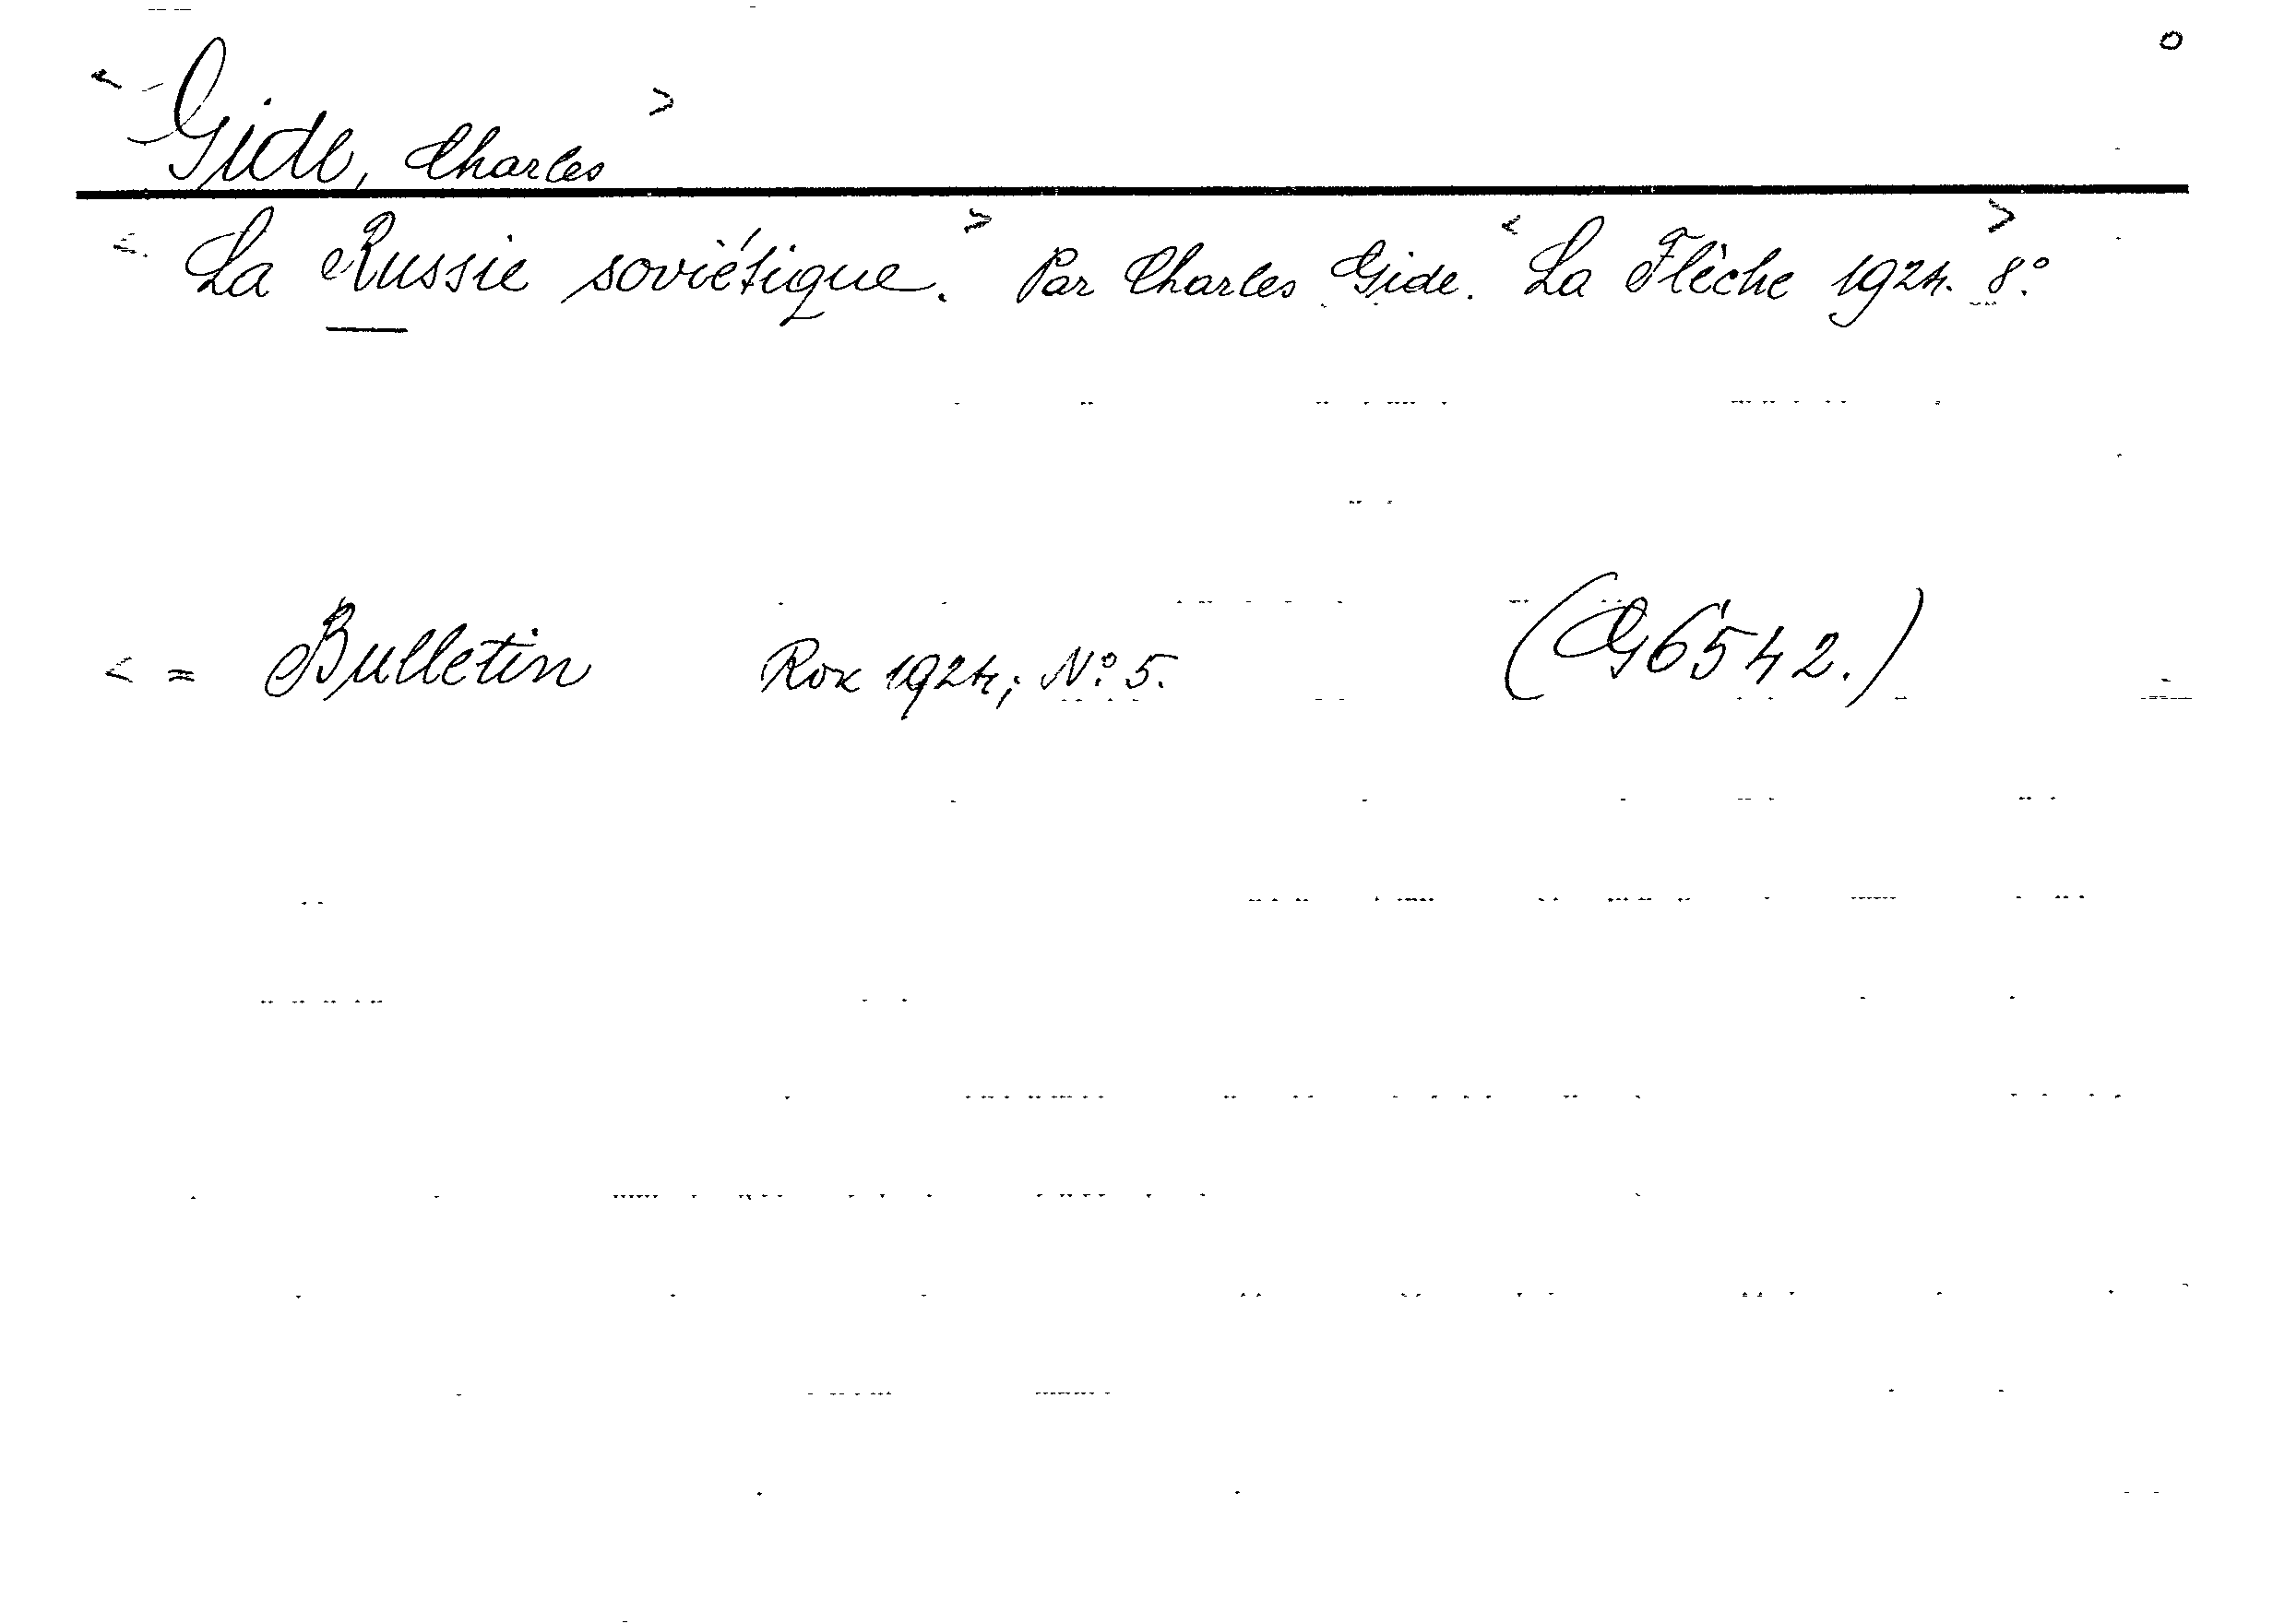 <Gide, Charles> o
<La Russie soviétique.> Par Charles Gide. <La Flèche 1924.> 8º.
< = Bulletin Rok 1924; Nº 5. (G6542.)